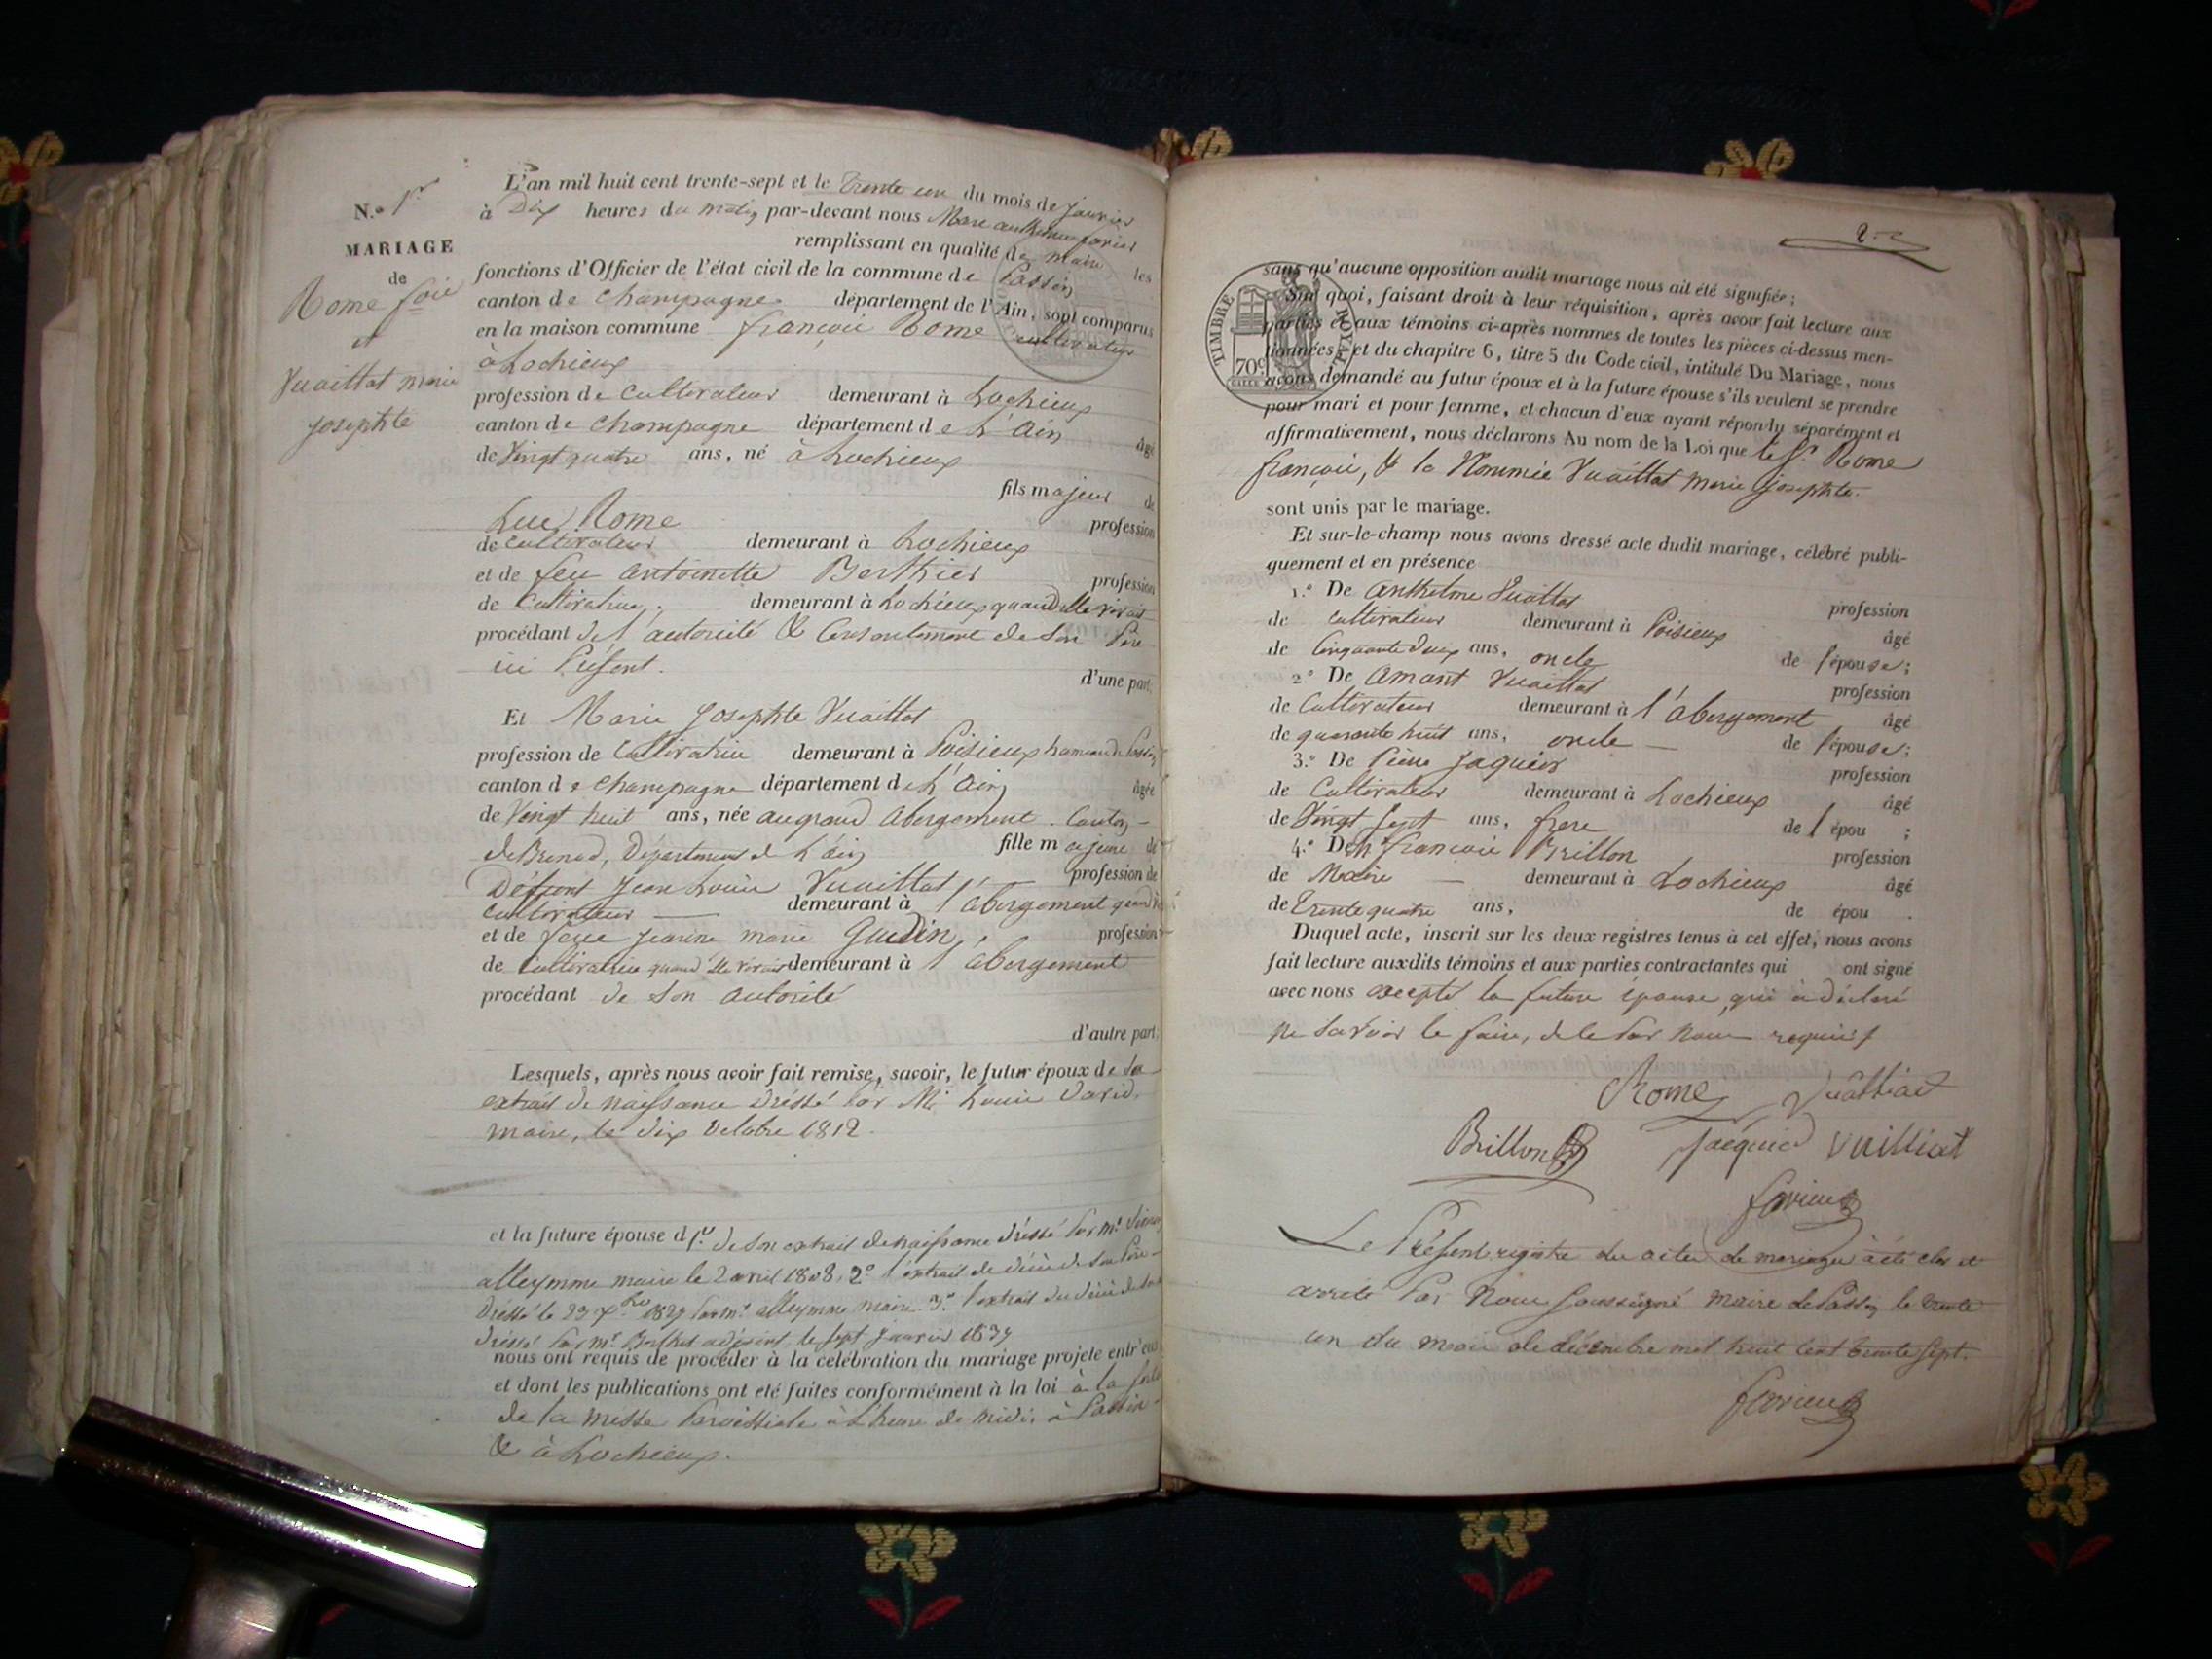 N.º 1er
MARIAGE
de
Rome fois
et
Vuaillat marie
josephte
L'an mil huit cent trente-sept et le trente un du mois de janvier
à Dix heures du matin par-devant nous Marc anthelme
remplissant en qualité de maire les
fonctions d'Officier de l'état civil de la commune de Passin
canton de Champagne département de l'Ain, sont comparus
en la maison commune françois Rome cultivateur
à Lochieux
profession de Cultivateur demeurant à Lochieux
canton de Champagne département de L'Ain âgé
de Vingt quatre ans, né à Lochieux
fils majeur de
Luc Rome profession
de Cultivateur demeurant à Lochieux
et de feu antoinette Berthier profession
de Cultivatrice demeurant à Lochieux quand elle vivait
procédant de l'autorité & Consentement de son Père
ici Présent.
d'une part,
Et Marie Josephte Vuaillat
profession de Cultivatrice demeurant à Poisieux hameau de Passin
canton de Champagne département de L'Ain âgée
de Vingt huit ans, née au grand Abergement Canton
de Brenod, Département de L'Ain fille majeure de
Défunt Jean Louis Vuaillat profession de
Cultivateur demeurant à l'abergement quand
et de feue Jeanne marie Gudin, profession
de Cultivatrice quand elle vivait demeurant à l'abergement
procédant de son autorité
d'autre part,
Lesquels, après nous avoir fait remise, savoir, le futur époux de son
extrait de naissance dréssé par Mr. Louis David,
maire, le dix octobre 1812.
et la future épouse d 1º. de son extrait de naissance dréssé par mr
alleymme maire le 2 avril 1808, 2º l'extrait de décès de son Père
dréssé le 29 par mr. alleymme maire. 3º l'extrait du décès de
dréssé par mr adjoint, le sept janvier 1837
nous ont requis de procéder à la célébration du mariage projeté entr'eux
et dont les publications ont été faites conformément à la loi à la
de la messe Paroissiale à L'heure de midi, à Passin
& à Lochieux.
2
TIMBRE ROYAL
70c
sans qu'aucune opposition audit mariage nous ait été signifiée;
Sur quoi, faisant droit à leur réquisition, après avoir fait lecture aux
parties et aux témoins ci-après nommés de toutes les pièces ci-dessus men-
tionnées, et du chapitre 6, titre 5 du Code civil, intitulé Du Mariage, nous
avons demandé au futur époux et à la future épouse s'ils veulent se prendre
pour mari et pour femme, et chacun d'eux ayant répondu séparément et
affirmativement, nous déclarons Au nom de la Loi que le Sr. Rome
françois, & la Nommée Vuaillat marie josephte.
sont unis par le mariage.
Et sur-le-champ nous avons dressé acte dudit mariage, célébré publi-
quement et en présence
1.º De Anthelme Vuaillat profession
de cultivateur demeurant à Poisieux âgé
de Cinquante deux ans, oncle de l'épouse;
2º De Amant Vuaillat profession
de Cultivateur demeurant à l'Abergement âgé
de quarante huit ans, oncle de l'épouse;
3.º De Pierre Jaquier profession
de Cultivateur demeurant à Lochieux âgé
de Vingt Sept ans, frere de l'épou ;
4.º De françois Brillon profession
de Maire demeurant à Lochieux âgé
de Trente quatre ans, de épou .
Duquel acte, inscrit sur les deux registres tenus à cet effet, nous avons
fait lecture auxdits témoins et aux parties contractantes qui ont signé
avec nous excepté la future épouse, qui a déclaré
ne savoir le faire, de ce par nous requis
Rome Vuailliat
Brillon Jacquier Vuilliat
favieux
Le Présent registre des actes de mariages à été clos et
arreté Par Nous Soussigné maire de Passin le trente
un du mois de décembre mil huit cent trente sept.
favieux